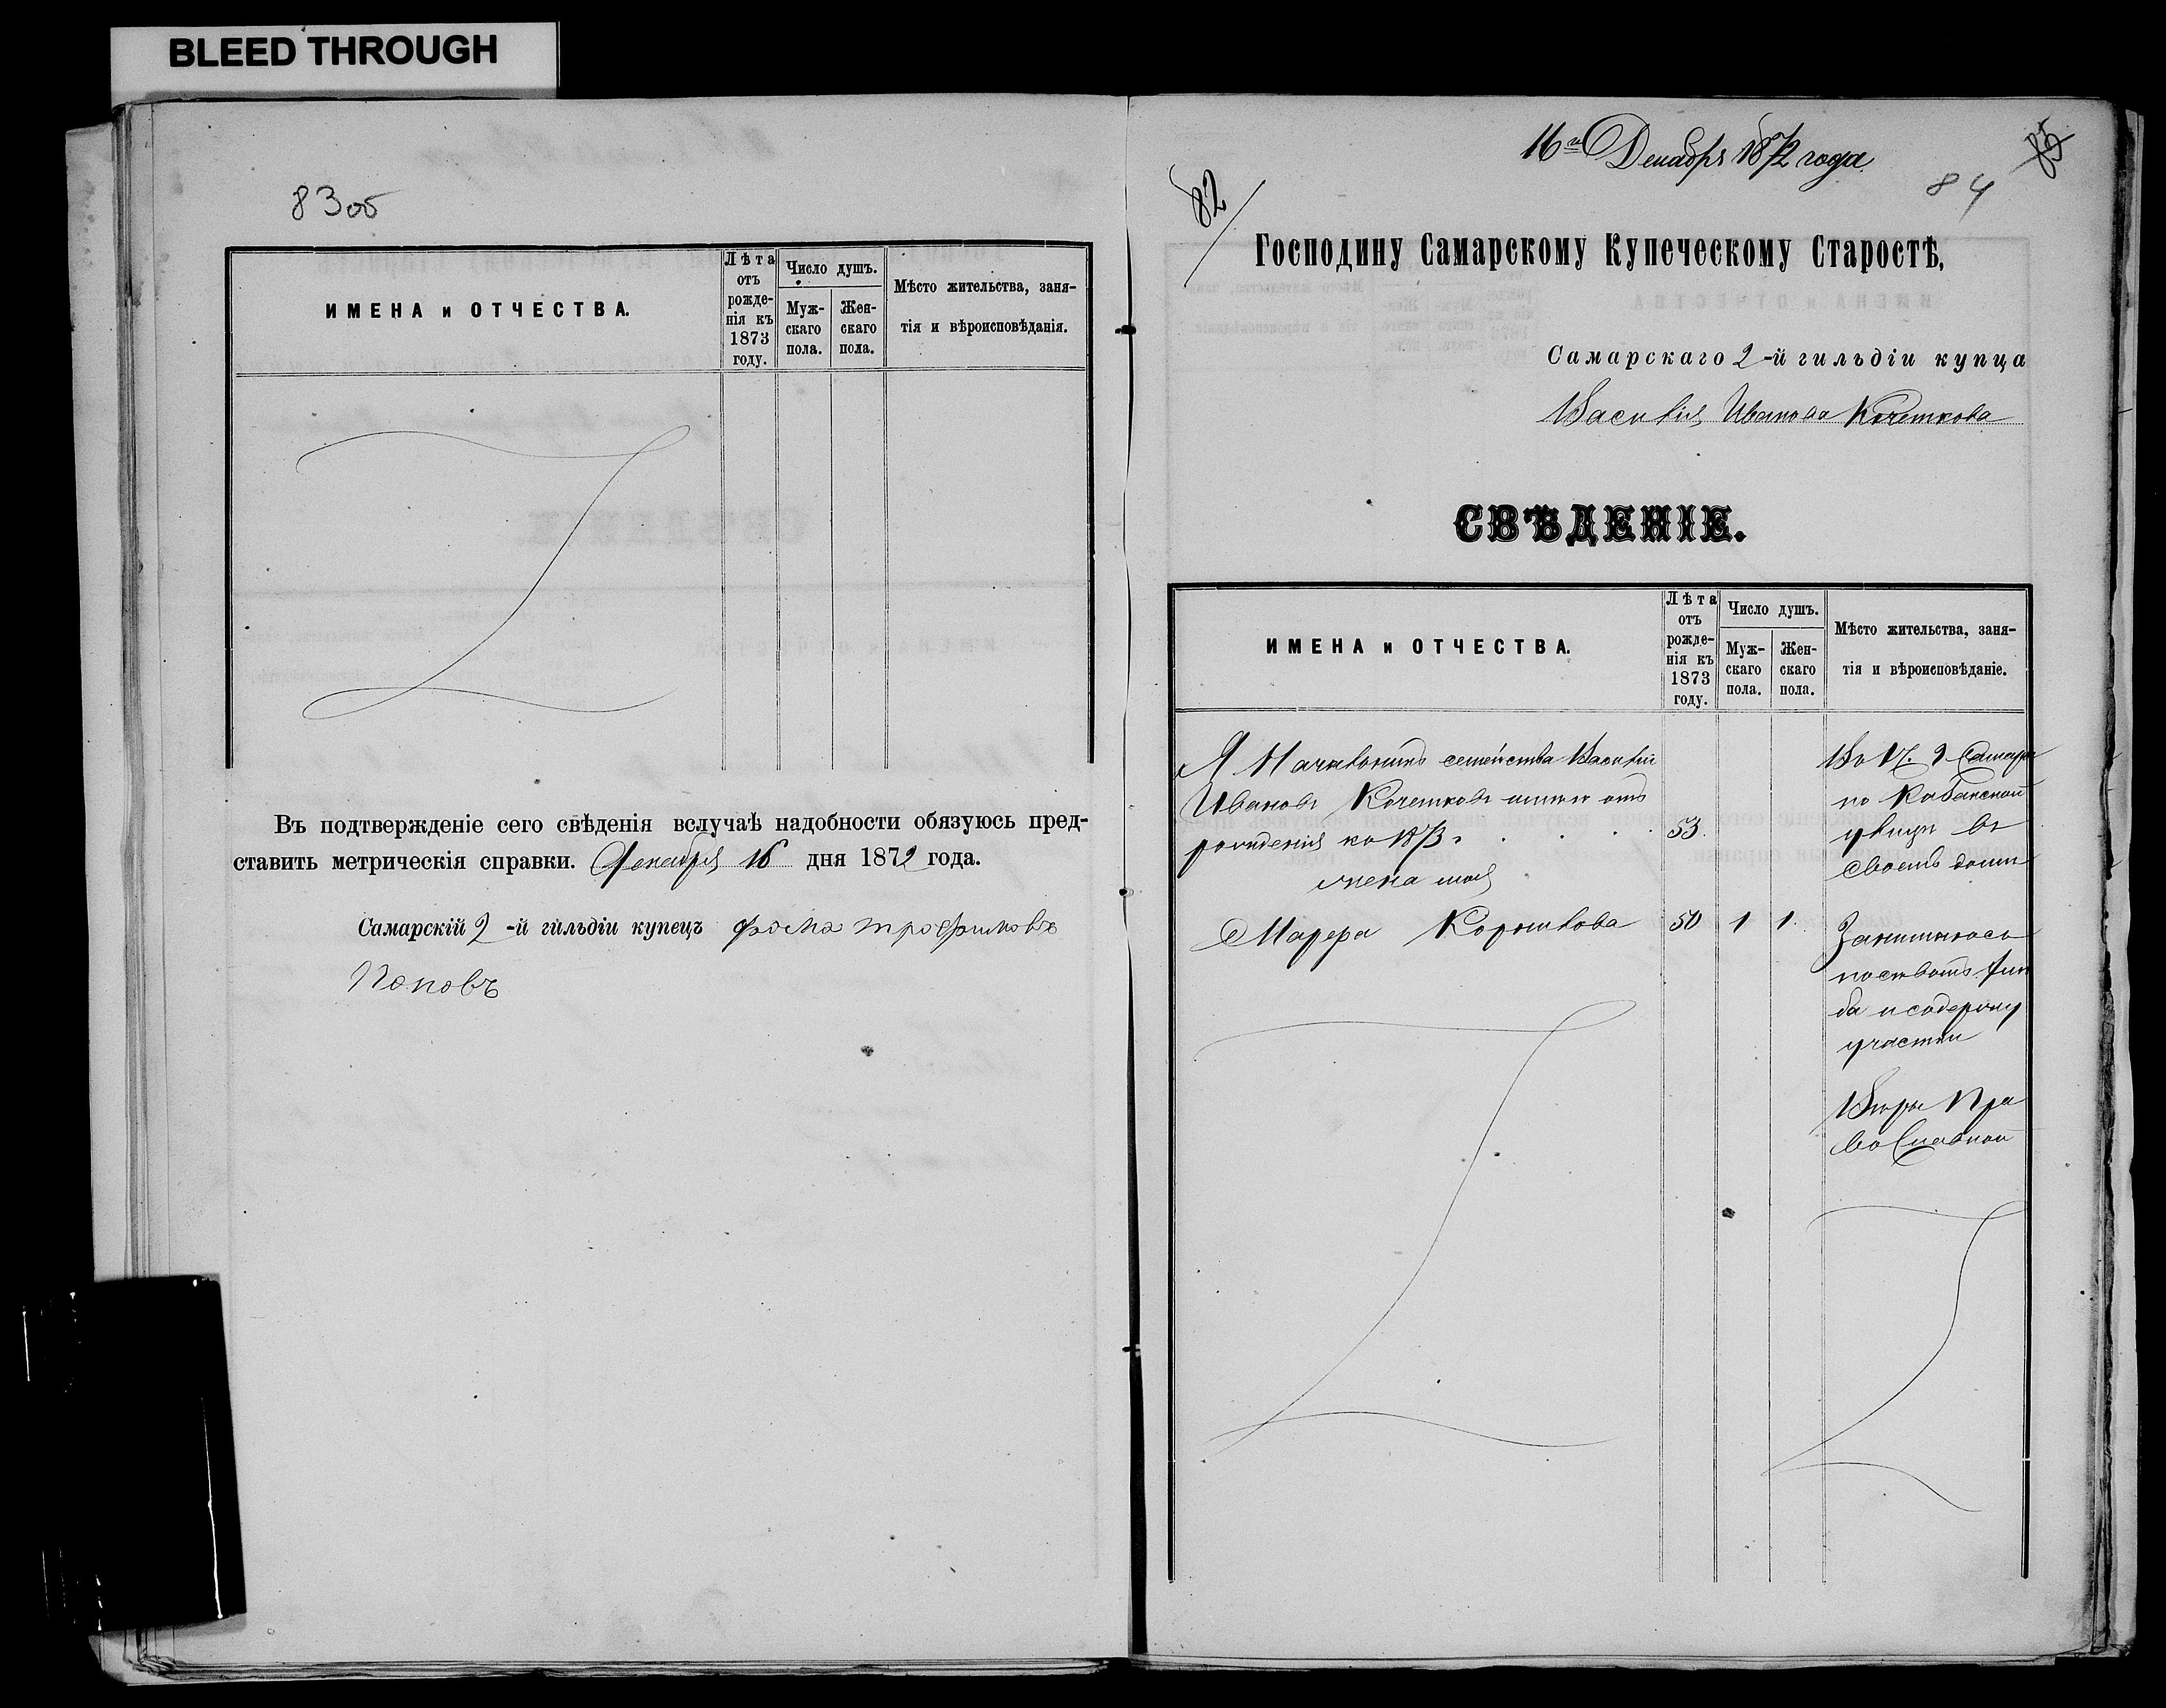 BLEED THROUGH
83об
ИМЕНА и ОТЧЕСТВА.
Лѣта
отъ
рожде-
нія къ
1873
году.
Число душъ.
Муж-
скаго
пола.
Жен-
скаго
пола.
Мѣсто жительства, заня-
тія и вѣроисповѣданія.
Въ подтвержденіе сего свѣденія вслучаѣ надобности обязуюсь пред-
ставить метрическія справки. Декабря 16 дня 1872 года.
Самарскій 2-й гильдіи купецъ фома трофимовъ
Поповъ
16го Декабря 1872 года
84
82
Господину Самарскому Купеческому Старостѣ,
Самарскаго 2-й гильдіи купца
Василія Иванова Кочеткова
СВѢДЕНІЕ.
ИМЕНА и ОТЧЕСТВА.
Лѣта
отъ
рожде-
нія къ
1873
году.
Число душъ.
Муж-
скаго
пола.
Жен-
скаго
пола.
Мѣсто жительства, заня-
тія и вѣроисповѣданіе.
Я семейства Василій
Ивановъ Кочетковъ отъ
рожденія 53.
жена моя
50 1 1.
Самары
по
улицы въ
своемъ доме
Занимаюсь
посевомъ хле
ба и содержу
участки
Веры Пра
вославной